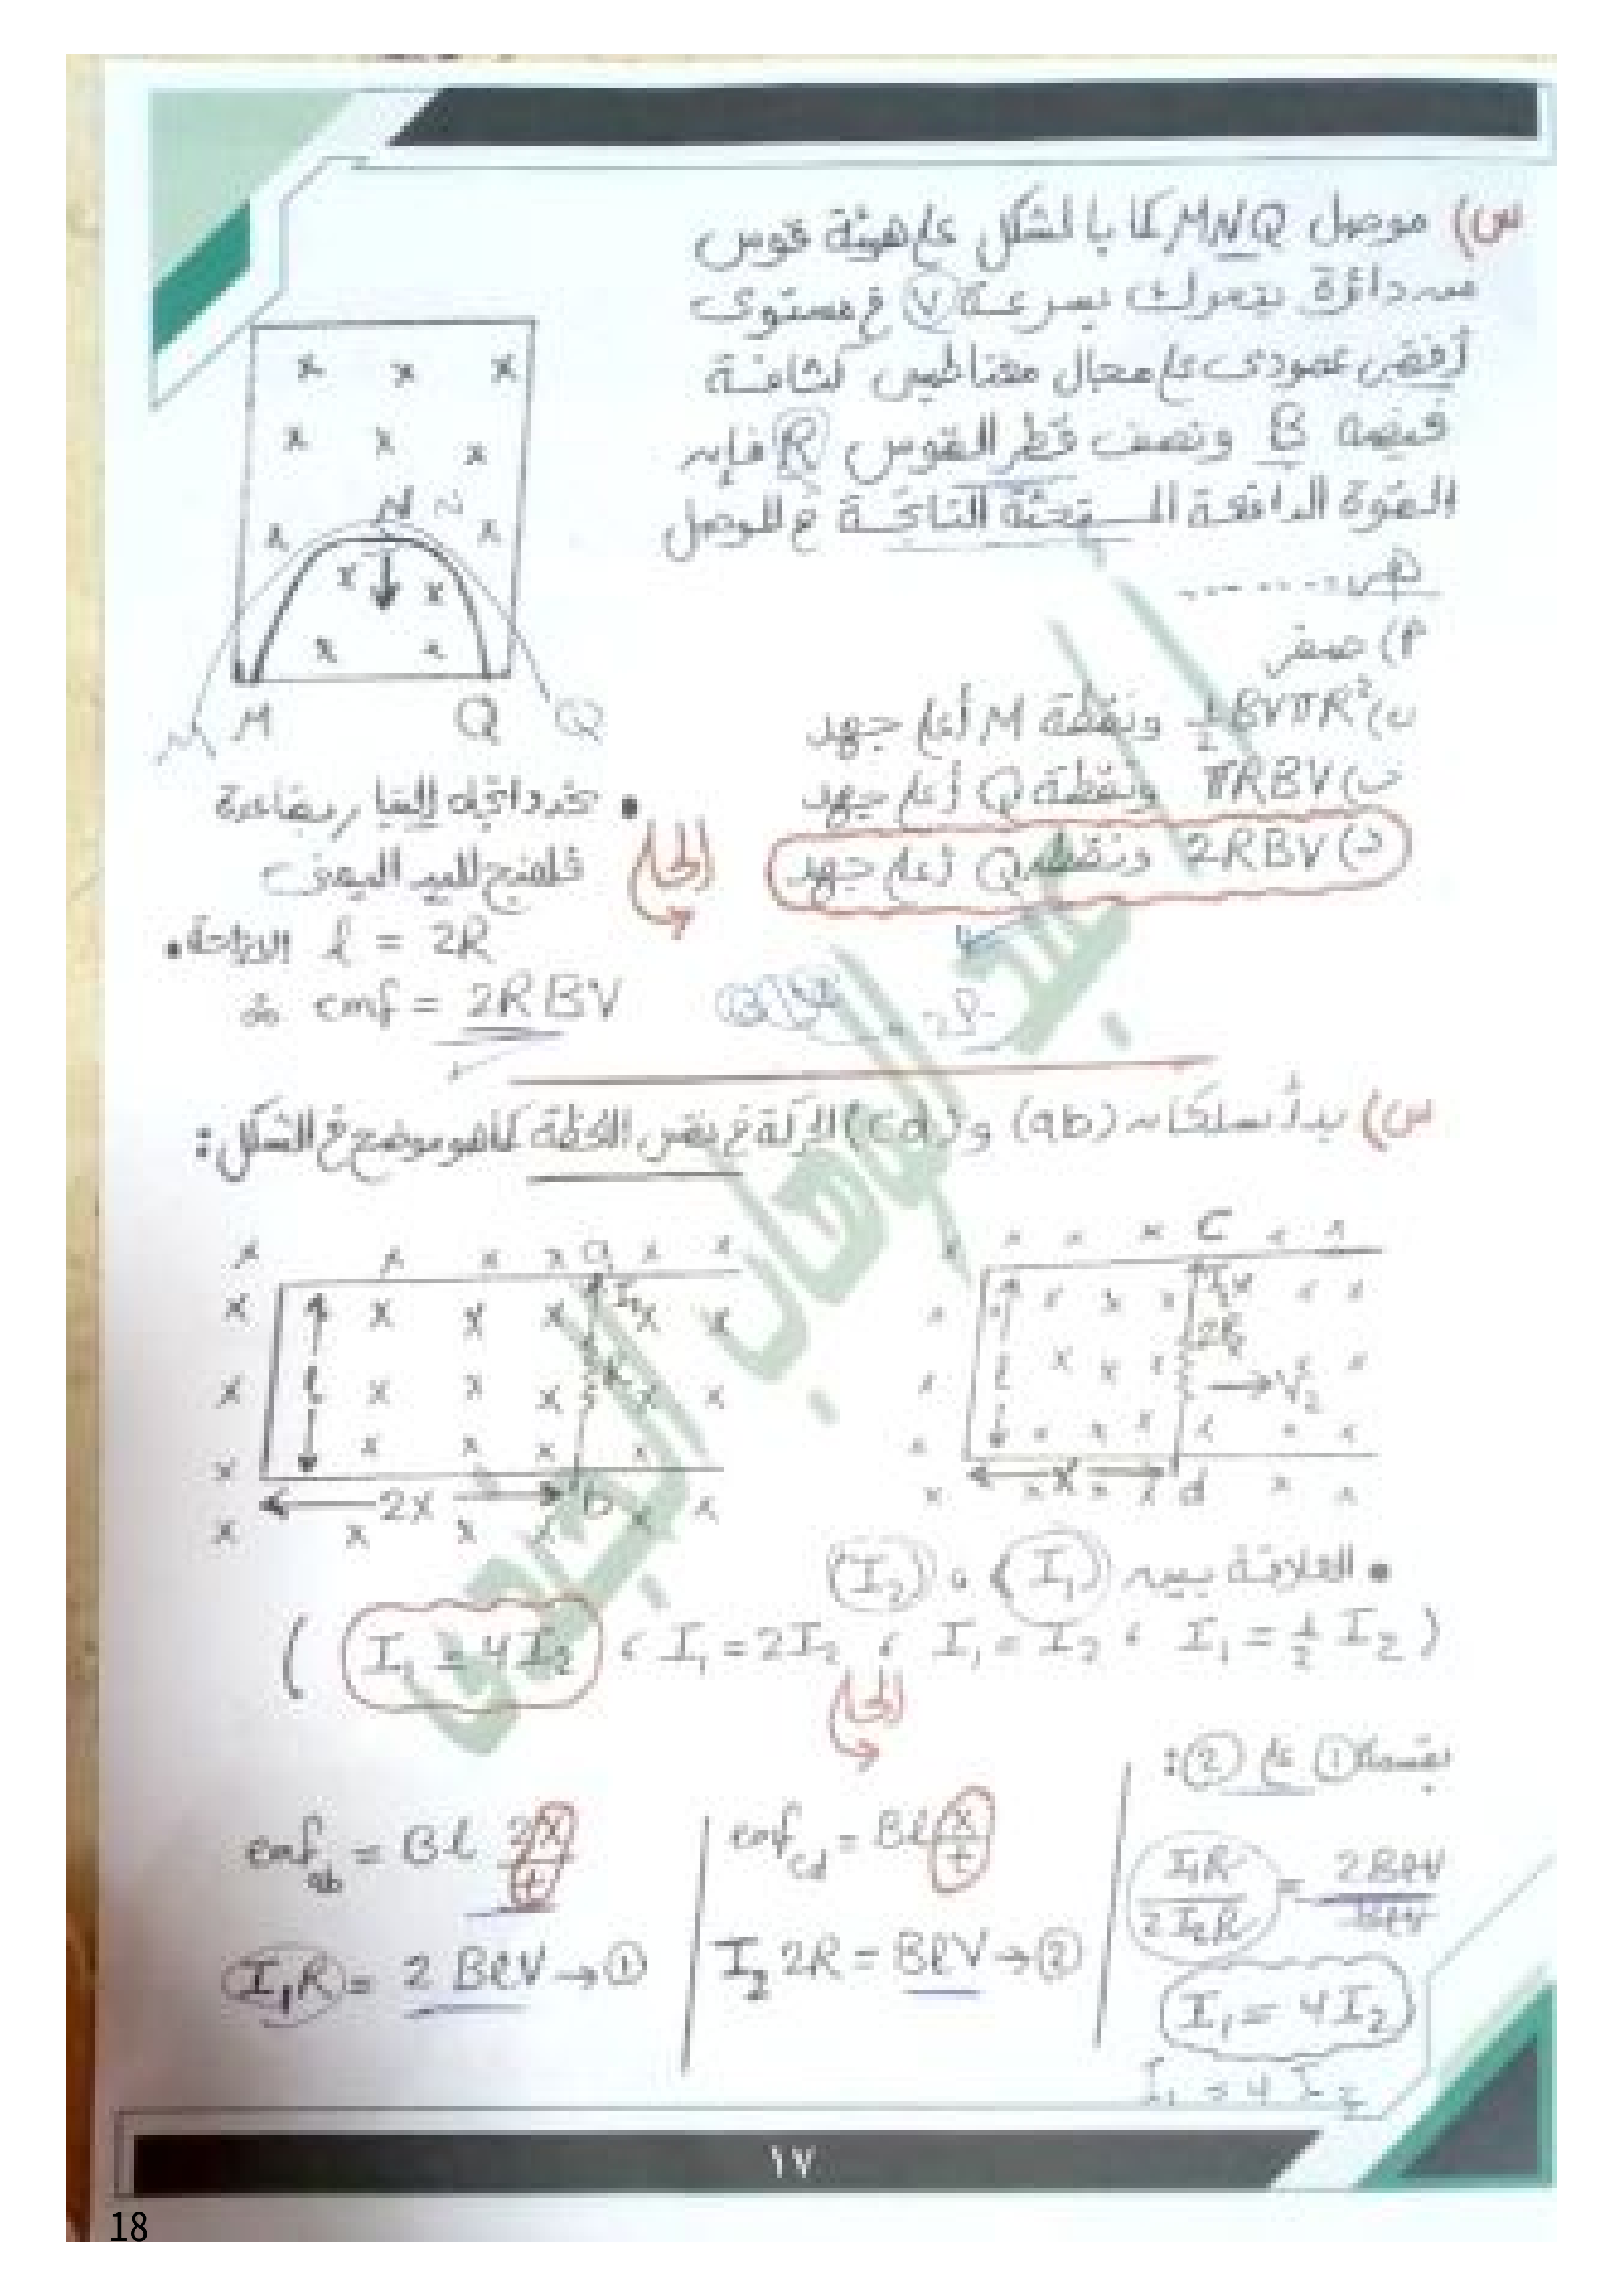 س) موصل MNQ كما بالشكل على هيئة قوس
من دائرة يتحرك بسرعة V في مستوى
أفقى عمودى على مجال مغناطيسى كثافة
فيضه B ونصف قطر القوس R فإن
القوة الدافعة المستحثة الناتجة في الموصل
هى ........
أ) صفر
ب) ½ BVπR² ونقطة M أعلى جهد
πRBV ونقطة Q أعلى جهد
د) 2RBV ونقطة Q أعلى جهد
x x x
x x x
x N N x
x x
x x
M M Q Q
الحل
• حدد اتجاه التيار بقاعدة
فلمنج لليد اليمنى
• الازاحة l = 2R
∴ emf = 2RBV
س) بدأ سلكان (ab) و (cd) الحركة في نفس اللحظة كما هو موضح في الشكل :
a I₁ R l 2x b
c I₂ 2R l V₂ x d
• العلاقة بين (I₁) ، (I₂)
( I₁ = ½ I₂ ، I₁ = I₂ ، I₁ = 2I₂ ، I₁ = 4I₂ )
الحل
emf ab = Bl 2x/t
I₁R = 2 BlV → ①
emf cd = Bl x/t
I₂ 2R = BlV → ②
بقسمة ① على ② :
I₁R / 2I₂R = 2BlV / BlV
I₁ = 4I₂
I₁ = 4 I₂
١٧
18